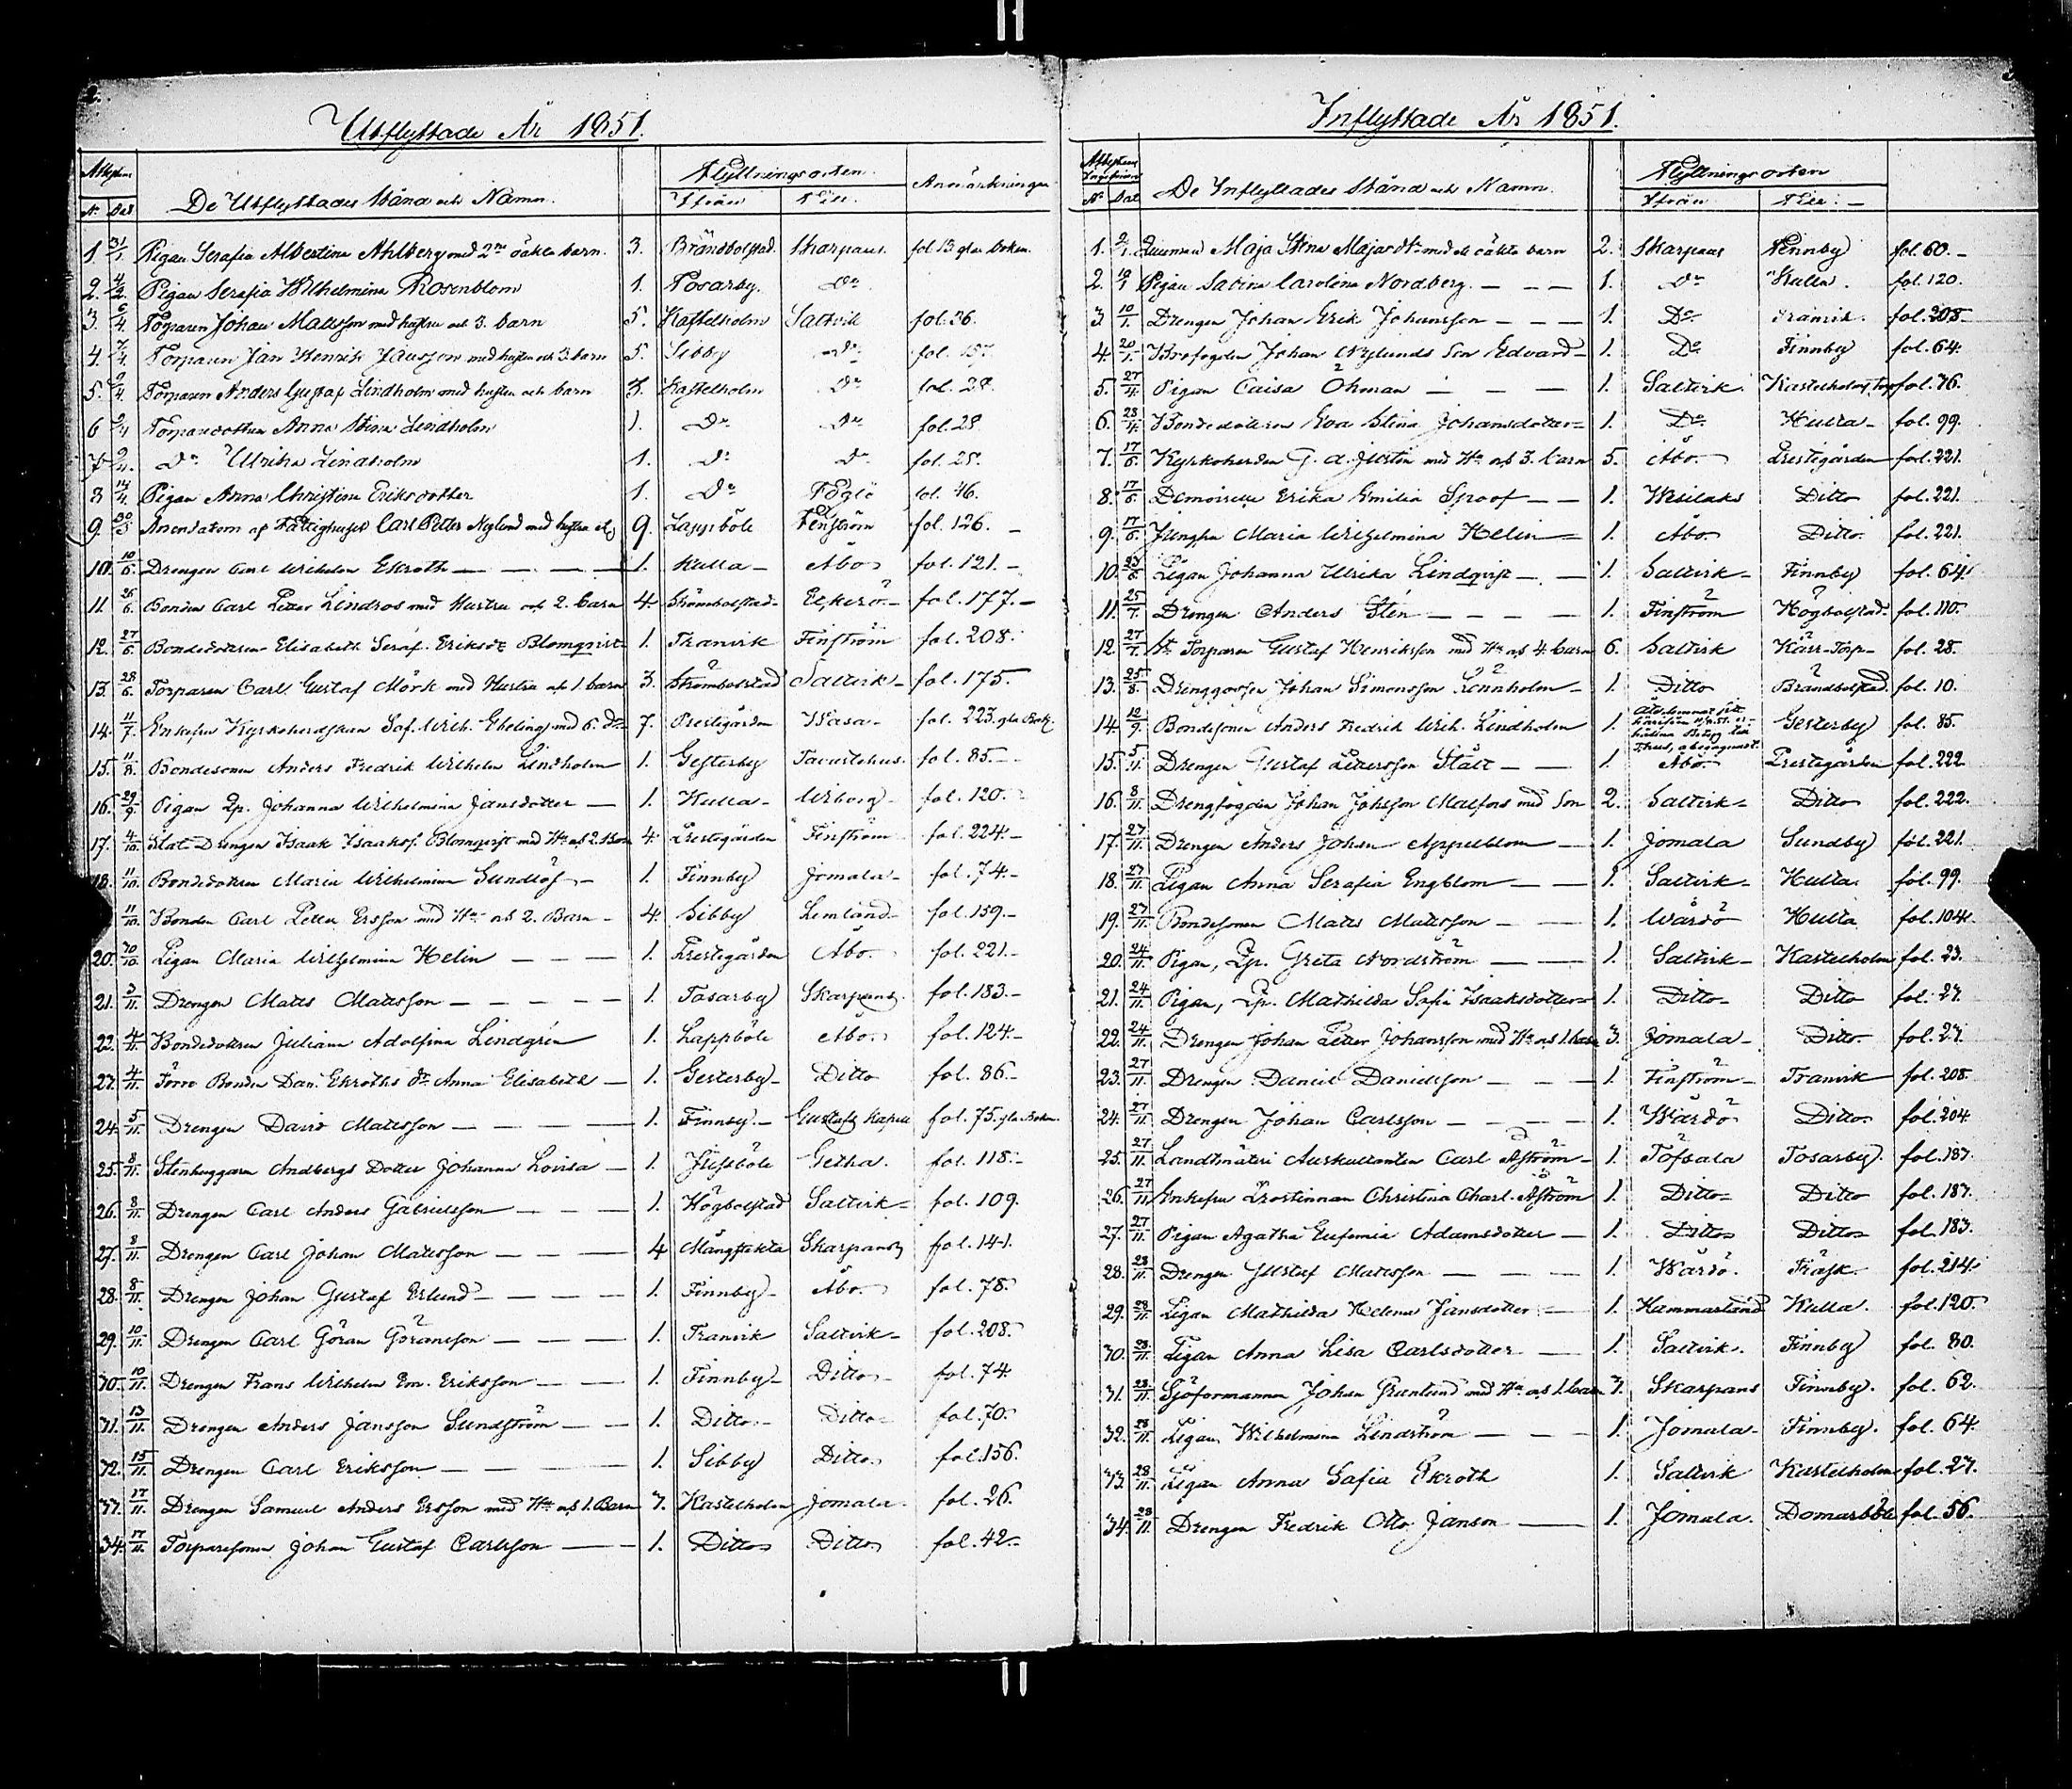 2.
Utflyttade År 1851.
Attestens
De Utflyttades Stånd och Namn.
Flyttningsorten.
Anmärkningar
No Dat
Ifrån Till.
1. 31/1 Pigan Serafia Albertina Ahlberg med 2ne oäkta barn. 3. Brändbolstad. Skarpans. fol 13 gla boken.
2. 4/2 Pigan Serafia Wilhelmina Rosenblom 1. Tosarby. Do
3. 6/4 Torparen Johan Mattsson med hustru och 3. barn 5. Kastelholm Saltvik fol. 36.
4. 7/4 Torparen Jan Henrik Jansson med hustru och 3. barn 5. Sibby Do fol. 157.
5. 9/4 Torparen Anders Gustaf Lindholm med hustru och barn 3. Kastelholm Do fol. 28.
6 9/4 Torparedottren Anna Stina Lindholm 1. Do Do fol. 28
7. 9/4 Do Ulrika Lindholm 1. Do Do fol. 28.
8 14/4 Pigan Anna Christina Eriksdotter 1. Do Föglö fol. 46.
9. 30/5 af Fattighuset Carl Petter Nylund med hustru 9. Lappböle Finström fol. 126.
10. 10/6. Drengen Carl Wilhelm Ekroth 1. Kulla Åbo fol. 121.
11. 26/6. Bonden Carl Petter Lindros med Hustru och 2. barn 4. Strömbolstad Eckerö fol. 177.
12. 27/6. Bondedottren Elisabeth Seraf. Eriksdr Blomqvist 1. Tranvik Finström fol. 208.
13. 28/6. Torparen Carl Gustaf Mörk med Hustru och 1. barn 3. Strömbolstad Saltvik fol. 175.
14. 11/7. Enkefru Kyrkoherdskan Sof. Wilh. Ebeling med 6. dr 7. Prestgården Wasa fol. 223. gla Bok.
15. 11/8. Bondesonen Anders Fredrik Wilhelm Lindholm 1. Gesterby Tavastehus. fol. 85.
16. 29/9. Pigan Lp. Johanna Wilhelmina Jansdotter 1. Kulla Wiborg fol. 120.
17. 4/10. Stat-Drengen Isaak Isaaksf. Blomqvist med Hu och 2. Barn 4. Prestegården Finström fol. 224.
18. 11/10. Bondedottren Maria Wilhelmina Sundlöf 1. Finnby Jomala fol. 74.
11/10. Bonden Carl Petter Ersson med Hu och 2. Barn 4. Sibby Lemland fol. 159.
20. 30/10. Pigan Maria Wilhelmina Helin 1. Prestegården Åbo. fol. 221.
21. 3/11. Drengen Matts Mattsson 1. Tosarby Skarpans. fol. 183.
22. 4/11. Bondedottren Juliana Adolfina Lindgrén 1. Lappböle Åbo. fol. 124.
23. 4/11. Förre Bonden Dan. Ekroths dr Anna Elisabeth 1. Gesterby Ditto fol. 86.
24. 5/11. Drengen David Mattsson 1. Finnby. Gustafs Kapell fol. 75. gla Boken.
25. 8/11. Stenhuggaren Andbergs Dotter Johanna Lovisa 1. Jussböle Getha. fol. 118.
26. 8/11. Drengen Carl Anders Gabrielsson 1. Högbolstad Saltvik fol. 109.
27. 8/11. Drengen Carl Johan Mattsson 4 Mångstekta Skarpans fol. 141.
28. 8/11. Drengen Johan Gustaf Erlund 1. Finnby Åbo. fol. 78.
29. 10/11. Drengen Carl Göran Göransson 1. Tranvik Saltvik fol. 208.
30. 10/11. Drengen Frans Wilhelm Em. Eriksson 1. Finnby Ditto fol. 74
31. 13/11. Drengen Anders Jansson Sundström 1. Ditto Ditto fol. 70.
32. 15/11. Drengen Carl Eriksson 1. Sibby Ditto fol. 156.
33. 17/11. Drengen Samuel Anders Ersson med Hu och 1. Barn 3. Kastelholm Jomala. fol. 26.
34. 17/11. Torparesonen Johan Gustaf Carlsson 1. Ditto Ditto fol. 42.
Inflyttade År 1851.
Attestens
De Inflyttades Stånd och Namn.
Flyttningsorten
No Dat
Ifrån Till:
1. 2/1. Maja Stina Majardr med ett oäkta barn 2. Skarpans Finnby fol. 60.
2. 10/1 Pigan Sabina Carolina Nordberg. 1. Do Kulla. fol. 120.
3. 10/1. Drengen Johan Erik Johansson 1. Do Tranvik. fol. 208.
4. 20/1. Brofogden Johan Nylunds Son Edvard 1. Do Finnby fol. 64.
5. 27/4. Pigan Caisa Öhman 1. Saltvik. Kastelholms Torp fol. 36.
6. 28/4. Bondedottren Eva Stina Johansdotter 1. Do Hulta fol. 99.
7. 17/6. Kyrkoherden G. A. med Hu och 3. barn 5. Åbo. Prestegården fol. 221.
8. 17/6. Demoiselle Erika Emilia Spoof 1. Wesilaks Ditto fol. 221.
9. 17/6. Jungfru Maria Wilhelmina Helin 1. Åbo Ditto fol. 221.
10. 23/6. Pigan Johanna Ulrika Lindqvist 1. Saltvik Finnby fol. 64.
11. 25/7. Drengen Anders Stén 1. Finström Högbolstad. fol. 110.
12. 27/7. St. Torparen Gustaf Henriksson med Hu och 4. barn 6. Saltvik Kärr-Torp fol. 28.
13. 25/8. Drenggossen Johan Simonsson Lönnholm 1. Ditto Brändbolstad. fol. 10.
14. 12/9. Bondesonen Anders Fredrik Wilh. Lindholm 1. Återkommit Gesterby fol. 85.
15. 5/11. Drengen Gustaf Pettersson Stålt 1. Åbo. Prestegården fol. 222.
16. 8/11. Drengfogden Johan Johlsson Malfors med Son 2. Saltvik Ditto fol. 222.
17. 27/11. Drengen Anders Johan Appelblom 1. Jomala Sundby fol. 221.
18. 27/11. Pigan Anna Serafia Engblom 1. Saltvik Hulta fol. 99.
19. 27/11. Bondesonen Matts Mattsson 1. Wårdö Hulta fol. 104.
20. 24/11. Pigan, Lp. Greta Nordström 1. Saltvik Kastelholm fol. 23.
21. 24/11. Pigan, Lp. Mathilda Sofia Isaaksdotter 1. Ditto Ditto fol. 27.
22. 24/11. Drengen Johan Petter Johansson med Hu och 1. barn 3. Jomala Ditto fol. 27.
23. 27/11. Drengen Daniel Danielsson 1. Finström Tranvik fol. 208.
24. 27/11. Drengen Johan Carlsson 1. Wårdö Ditto fol. 204
25. 27/11. Landtmäteri Auskultanten Carl Åström 1. Töfsala Tosarby. fol. 187.
26. 27/11. Enkefru Prostinnan Christina Charl. Åström 1. Ditto Ditto fol. 187.
27. 27/11. Pigan Agatha Eufemia Adamsdotter 1. Ditto Ditto fol. 183.
28. 28/11. Drengen Gustaf Mattsson 1. Wårdö. Träsk. fol. 214.
29. 28/11. Pigan Mathilda Helena Jansdotter 1. Hammarland Kulla. fol. 120.
30. 28/11. Pigan Anna Lisa Carlsdotter 1. Saltvik. Finnby fol. 80.
31. 28/11. Sjöformannen Johan Grunlund med Hu och 1. barn 3. Skarpans Finnby. fol. 62.
32. 28/11. Pigan Wilhelmina Lindström 1. Jomala Finnby. fol. 64.
33. 28/11. Pigan Anna Sofia Ekroth 1. Saltvik Kastelholm fol. 27.
34. 28/11. Drengen Fredrik Otto Janson 1. Jomala. Domarböle fol. 56.